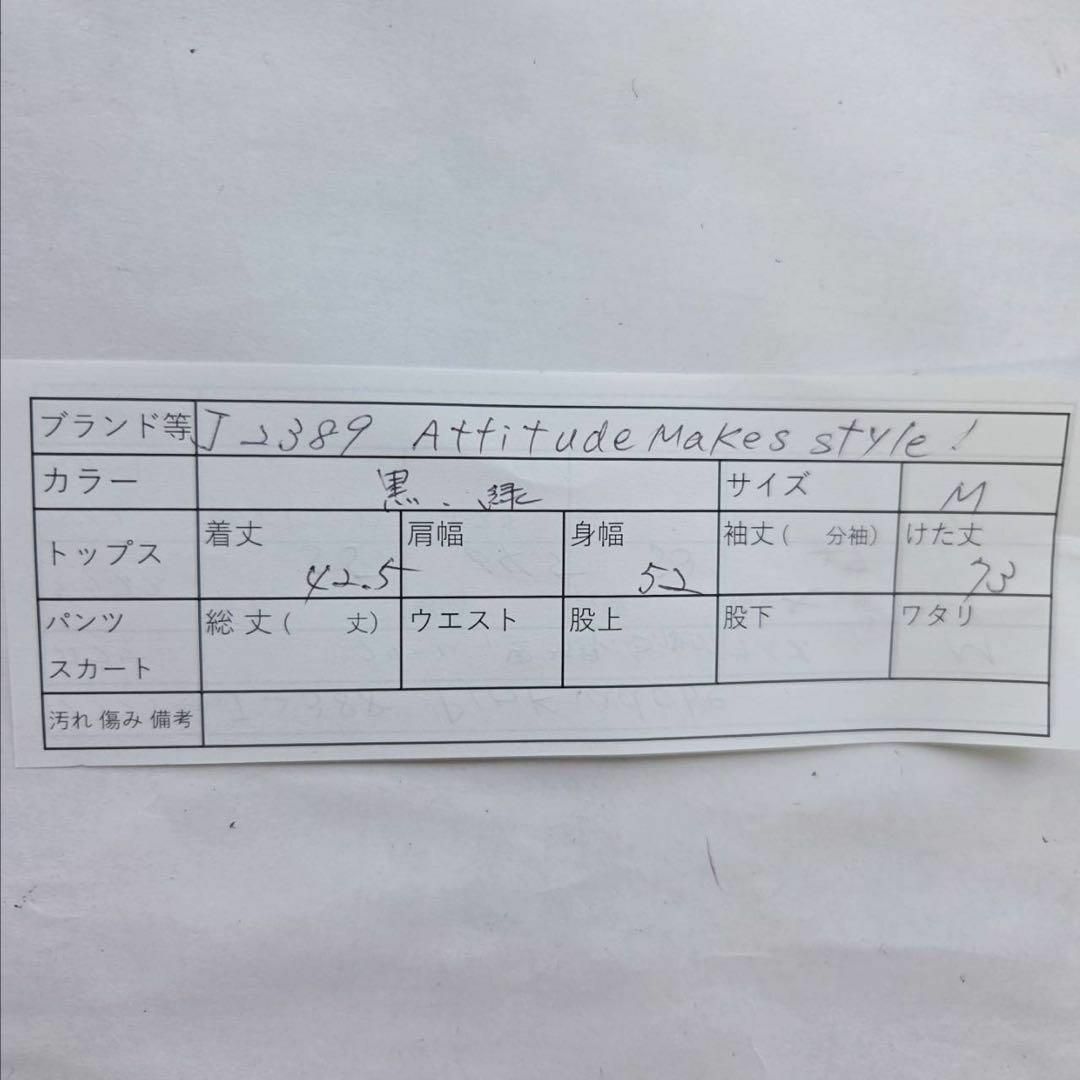 ブランド等 J2389 Attitude Makes style!
カラー 黒、緑 サイズ M
トップス 着丈 42.5 肩幅 身幅 52 袖丈( 分袖) けた丈 73
パンツ スカート 総丈( 丈) ウエスト 股上 股下 ワタリ
汚れ 傷み 備考